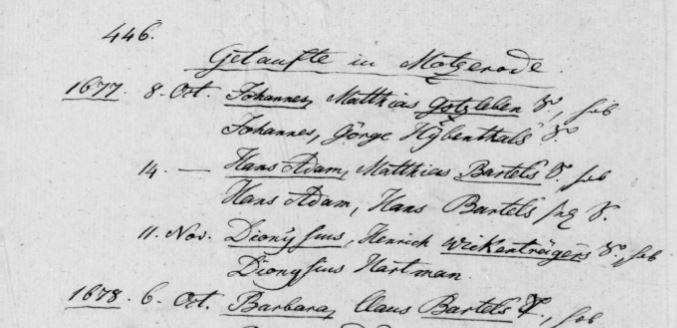 446.
Getaufte in Motzerode.
1677. 8. Oct. Johannes, Matthias Gotzleben S., hub
Johannes, Görge Hÿbenthals S.
14. — Hans Adam, Matthias Bartels S. hub
Hans Adam, Hans Bartels S.
11. Nov. Dionÿsius, Henrich Wickenträgers S., hub
Dionysius Hartman.
1678. 6. Oct. Barbara, Claus Bartels T., hob